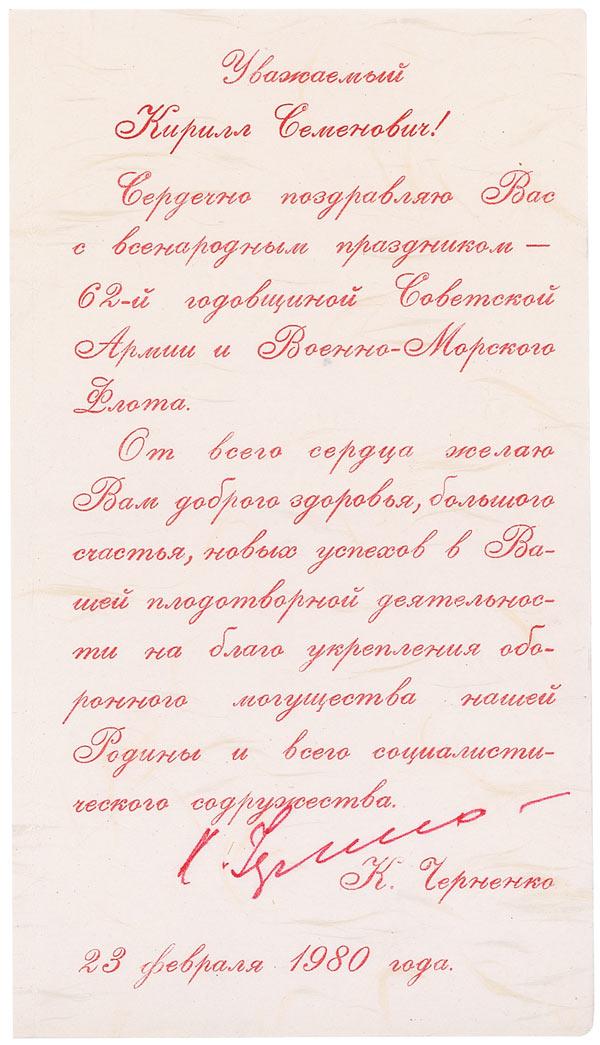 Уважаемый
Кирилл Семенович!
Сердечно поздравляю Вас
с всенародным праздником —
62-й годовщиной Советской
Армии и Военно-Морского
Флота.
От всего сердца желаю
Вам доброго здоровья, большого
счастья, новых успехов в Ва-
шей плодотворной деятельнос-
ти на благо укрепления обо-
ронного могущества нашей
Родины и всего социалисти-
ческого содружества.
К. Черненко
23 февраля 1980 года.